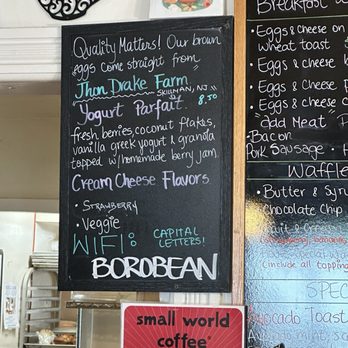 Quality Matters! Our brown
eggs come straight from
Jhon Drake Farm
SKILLMAN, NJ
Yogurt Parfait. 8.50
fresh berries, coconut flakes,
vanilla greek yogurt & granola
topped w/homemade berry jam.
Cream Cheese Flavors
• STRAWBERRY
• Veggie
WIFI: CAPITAL
LETTERS!
BOROBEAN
small world
coffee
Breakfast
Eggs & Cheese on
wheat toast
Eggs & cheese
Eggs & cheese
Eggs & cheese
"add Meat"
Bacon
Pork Sausage
Waffle
• Butter & Syr
Chocolate Chip
include all topping
SPEC
Avocado Toast